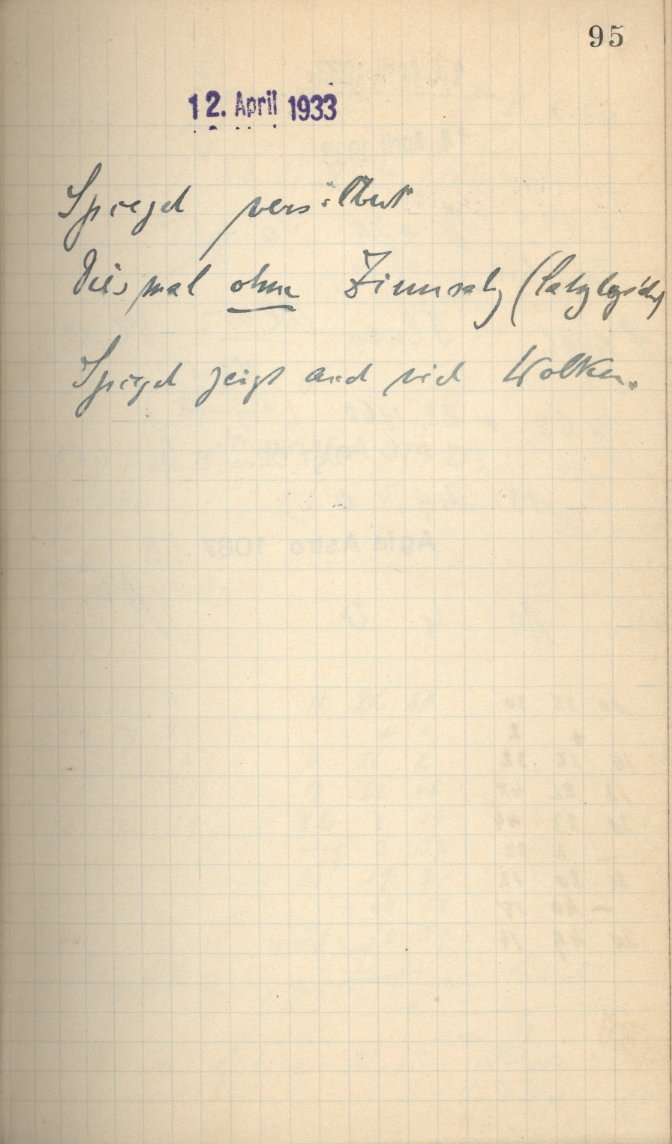 95
12. April 1933
Spiegel versilbert
Diesmal ohne Zinnsalz (Katalysator)
Spiegel zeigt auch viel Wolken.